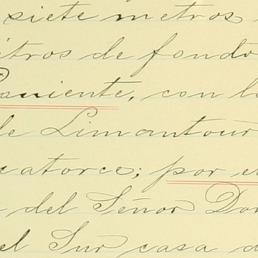 siete metros
tros de fondo
Poniente, con la
de Limantour
catorce; por el
del Señor Don
el Sur casa